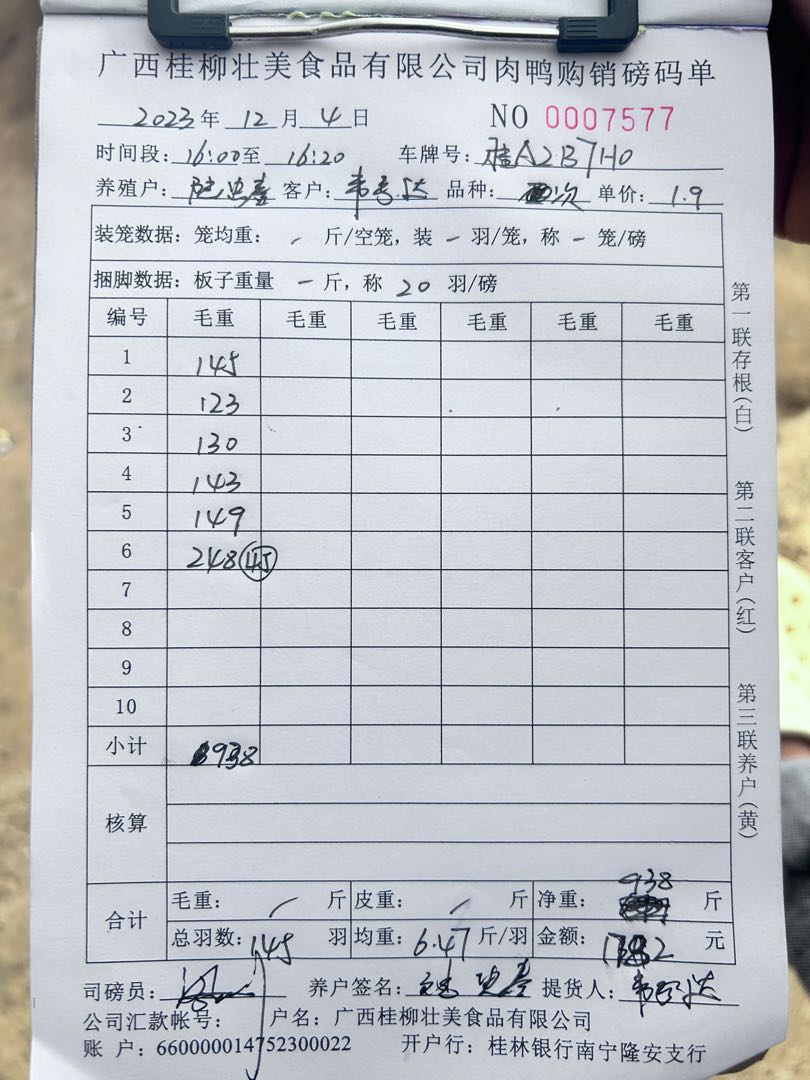 广西桂柳壮美食品有限公司肉鸭购销磅码单
2023年 12 月 4 日 NO 0007577
时间段: 16:00至 16:20 车牌号: 桂A2B7H0
养殖户: 客户: 品种: 次 单价: 1.9
装笼数据: 笼均重: - 斤/空笼, 装 - 羽/笼, 称 - 笼/磅
捆脚数据: 板子重量 - 斤, 称 20 羽/磅
编号 毛重 毛重 毛重 毛重 毛重 毛重
1 145
2 123
3 130
4 143
5 149
6 248 45
7
8
9
10
小计 938
核算
合计 毛重: / 斤 皮重: / 斤 净重: 938 斤
总羽数: 145 羽 均重: 6.47 斤/羽 金额: 1782 元
司磅员: 养户签名: 提货人:
公司汇款帐号: 户名: 广西桂柳壮美食品有限公司
账 户: 660000014752300022 开户行: 桂林银行南宁隆安支行
第一联存根(白)
第二联客户(红)
第三联养户(黄)